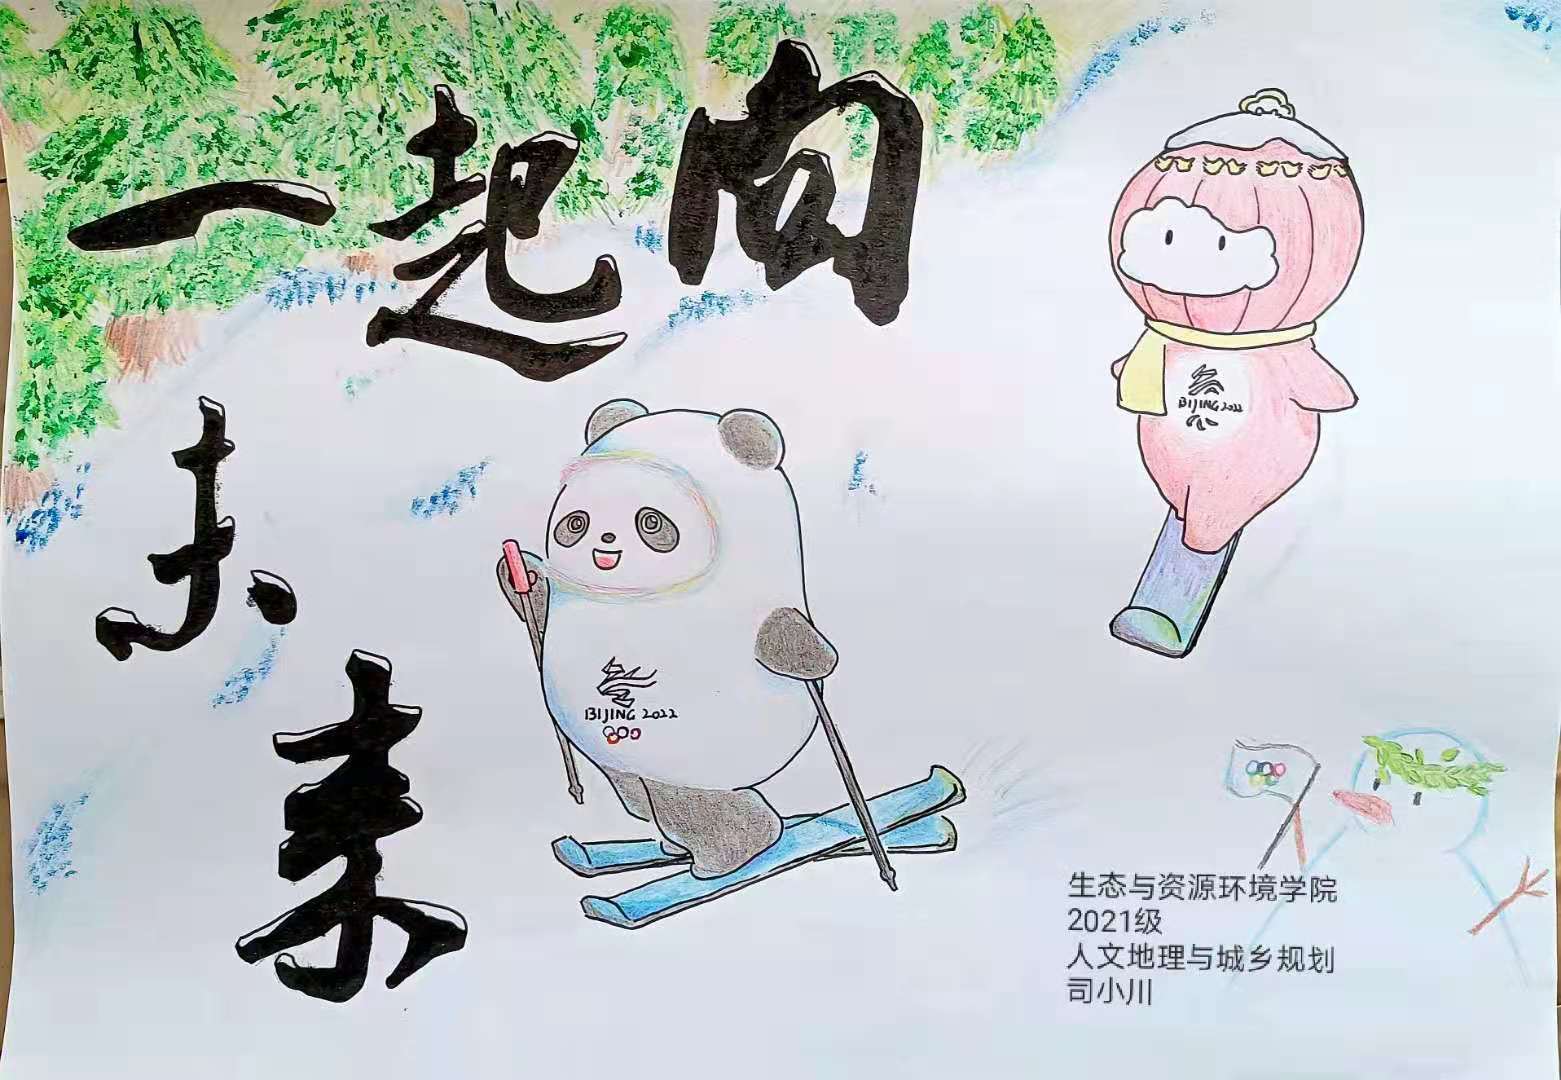 一起向
未
来
BIJING 2022
BIJING 2022
生态与资源环境学院
2021级
人文地理与城乡规划
司小川